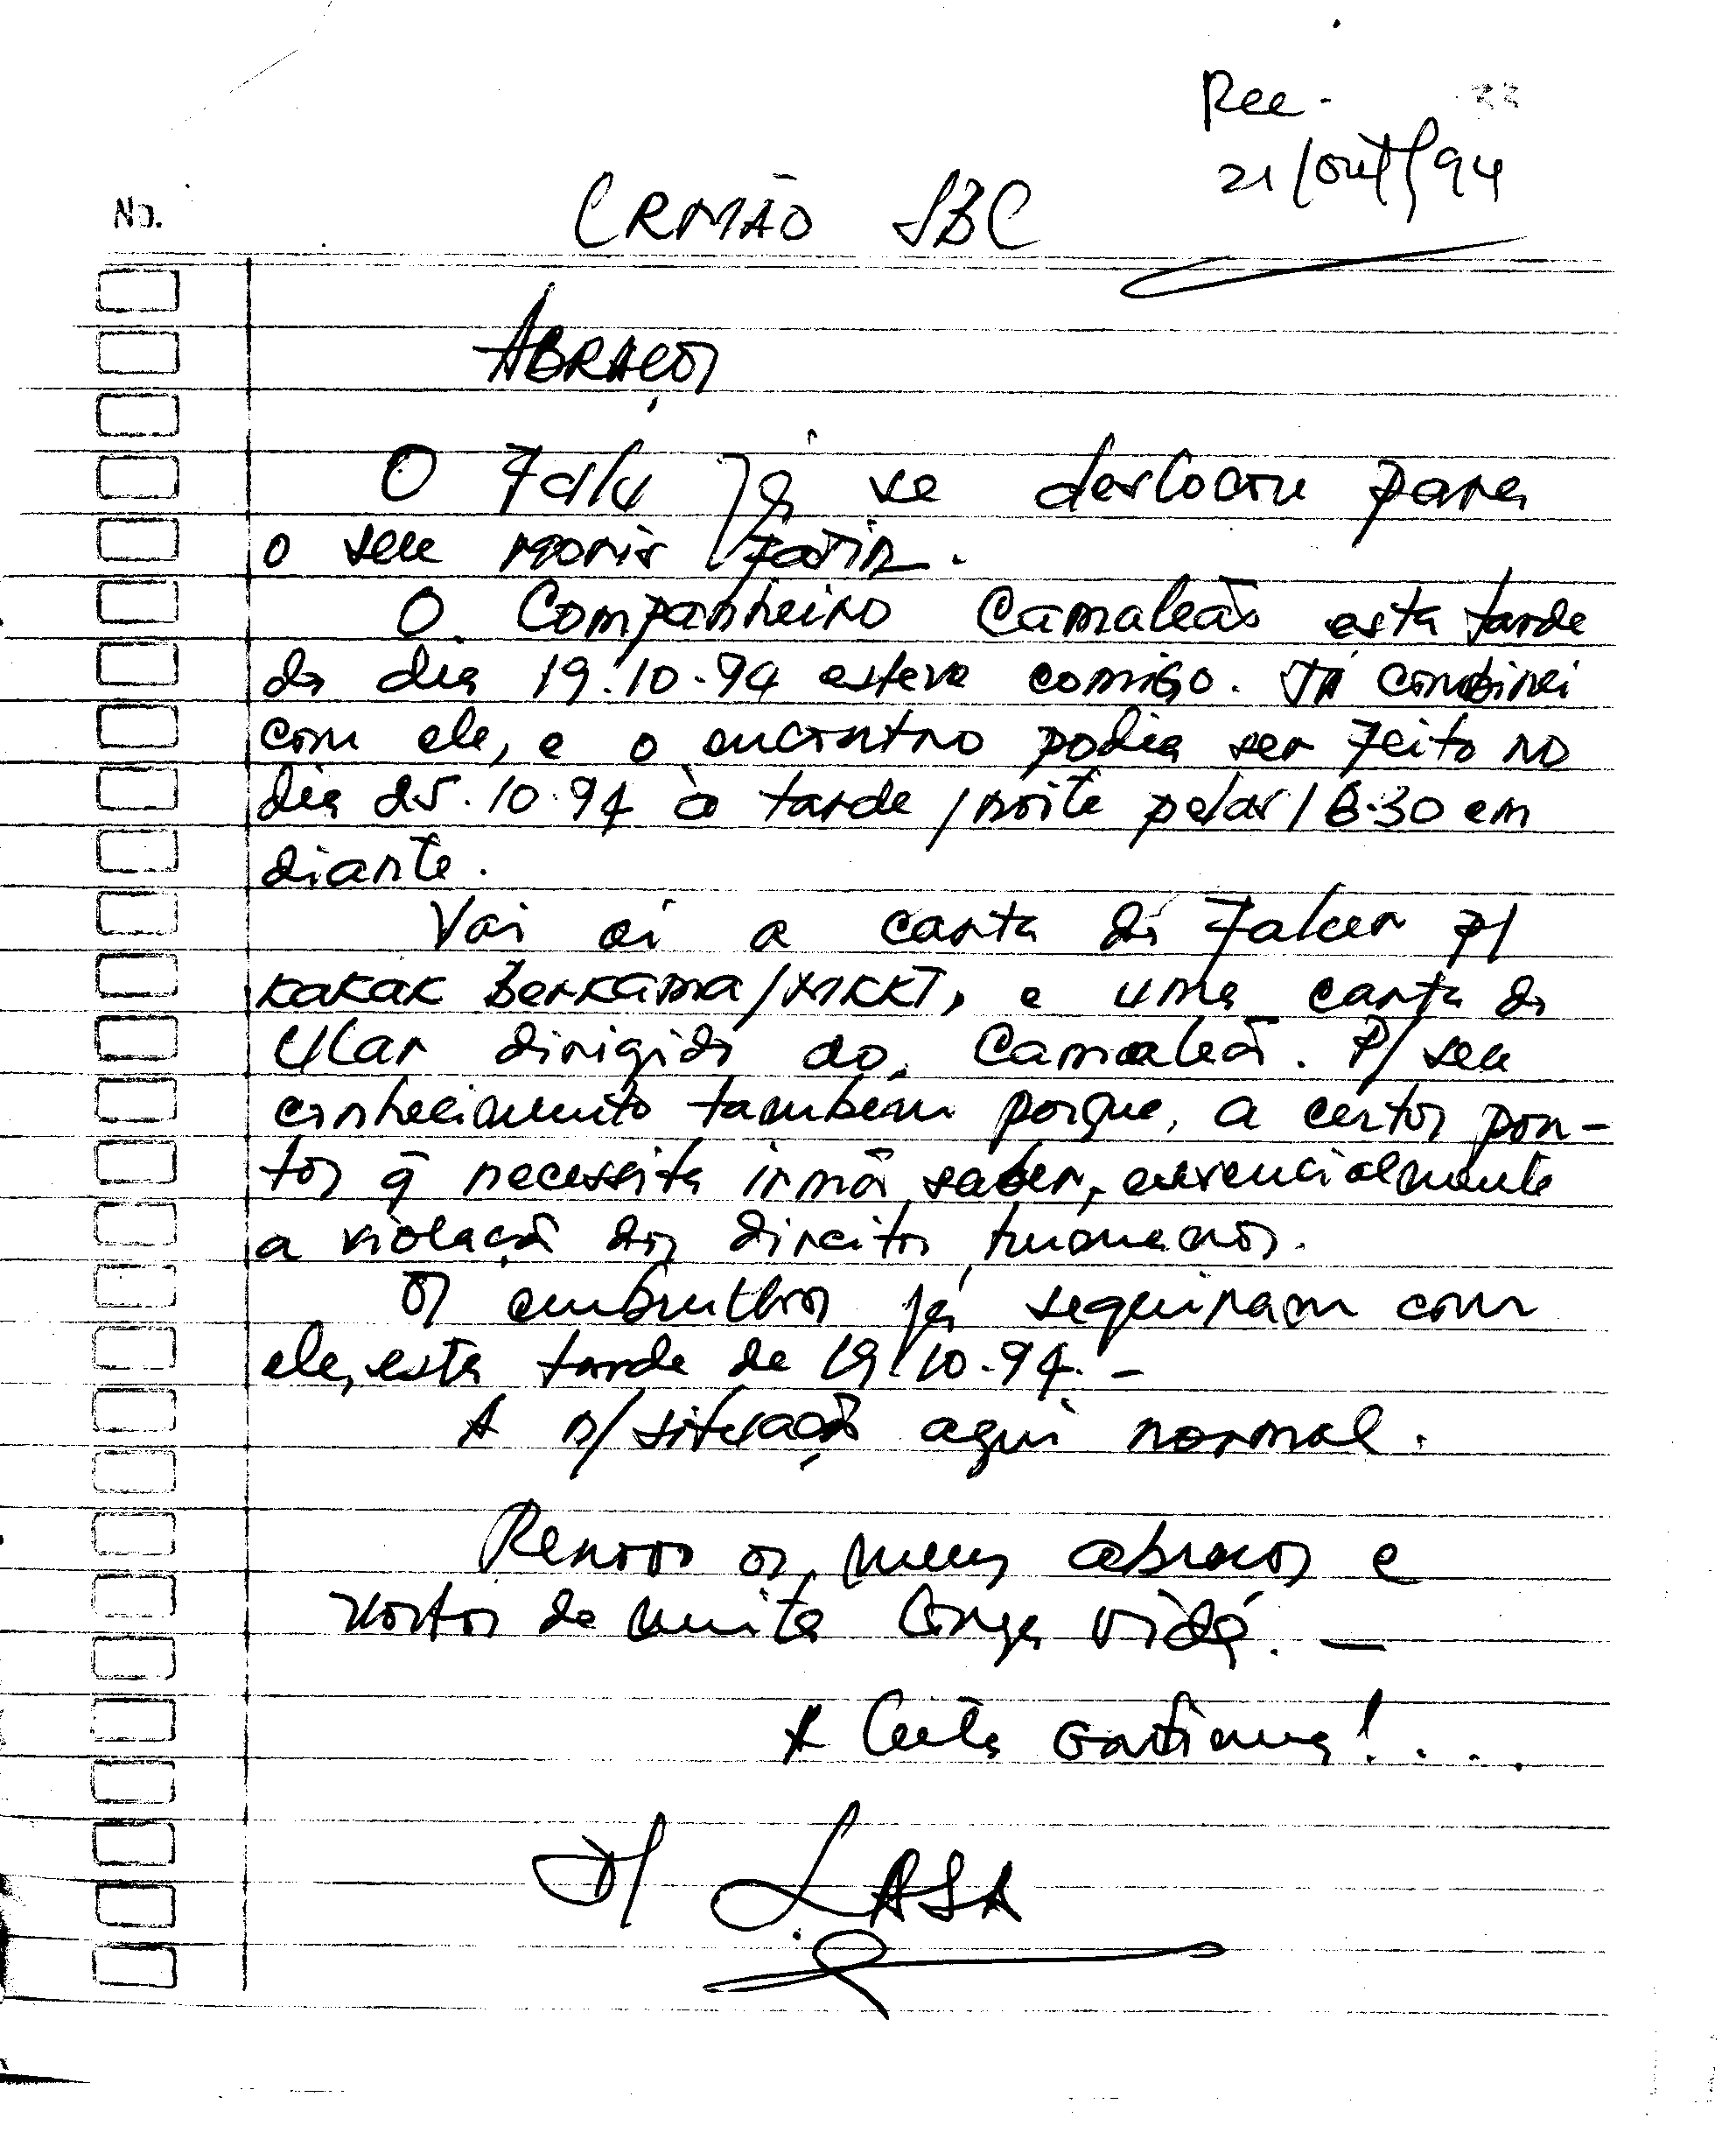 Rec.
21/Out/94
No.
IRMÃO SBC
ABRAÇOS
O Falu já se deslocou para
o seu horis fatin.
O Companheiro Camaleão esta tarde
do dia 19.10.94 esteve comigo. Já combinei
com ele, e o encontro podia ser feito no
dia 25.10.94 à tarde/noite pelas 18.30 em
diante.
Vai aí a carta do Falur p/
KAKAK Berkama/, e uma carta do
Ular dirigido ao Camaleão. P/ seu
conhecimento também porque, a certos pon-
tos q̃ necessita irmão saber, essencialmente
a violação dos direitos humanos.
Os embrulhos já seguiram com
ele, esta tarde de 19.10.94. -
A n/situação aqui normal.
Renovo os meus abraços e
votos de muita longa vida. —
A Luta Continua!....
LASA